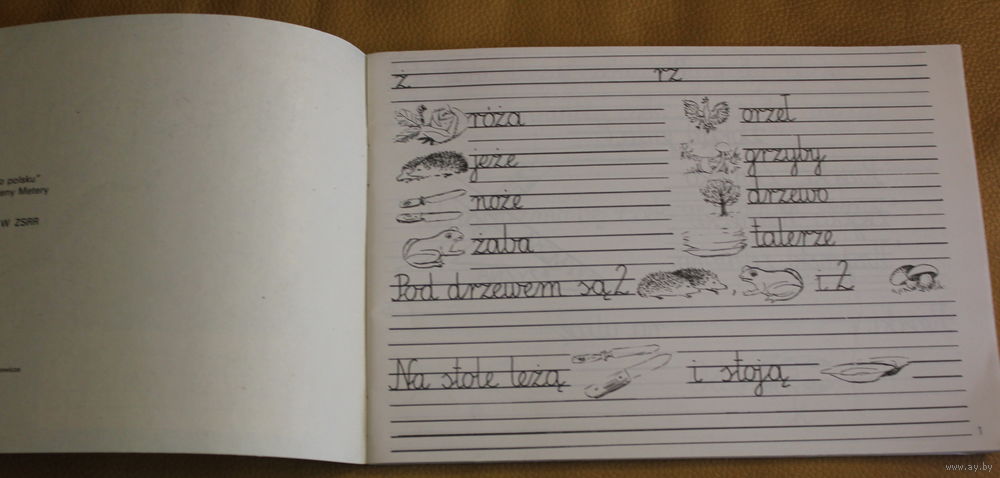 o polsku"
eny Metery
W ZSRR
ż rz
róża orzeł
jeże grzyby
noże drzewo
żaba talerze
Pod drzewem są 2 , i 2
Na stole leżą i stoją
1
www.ay.by